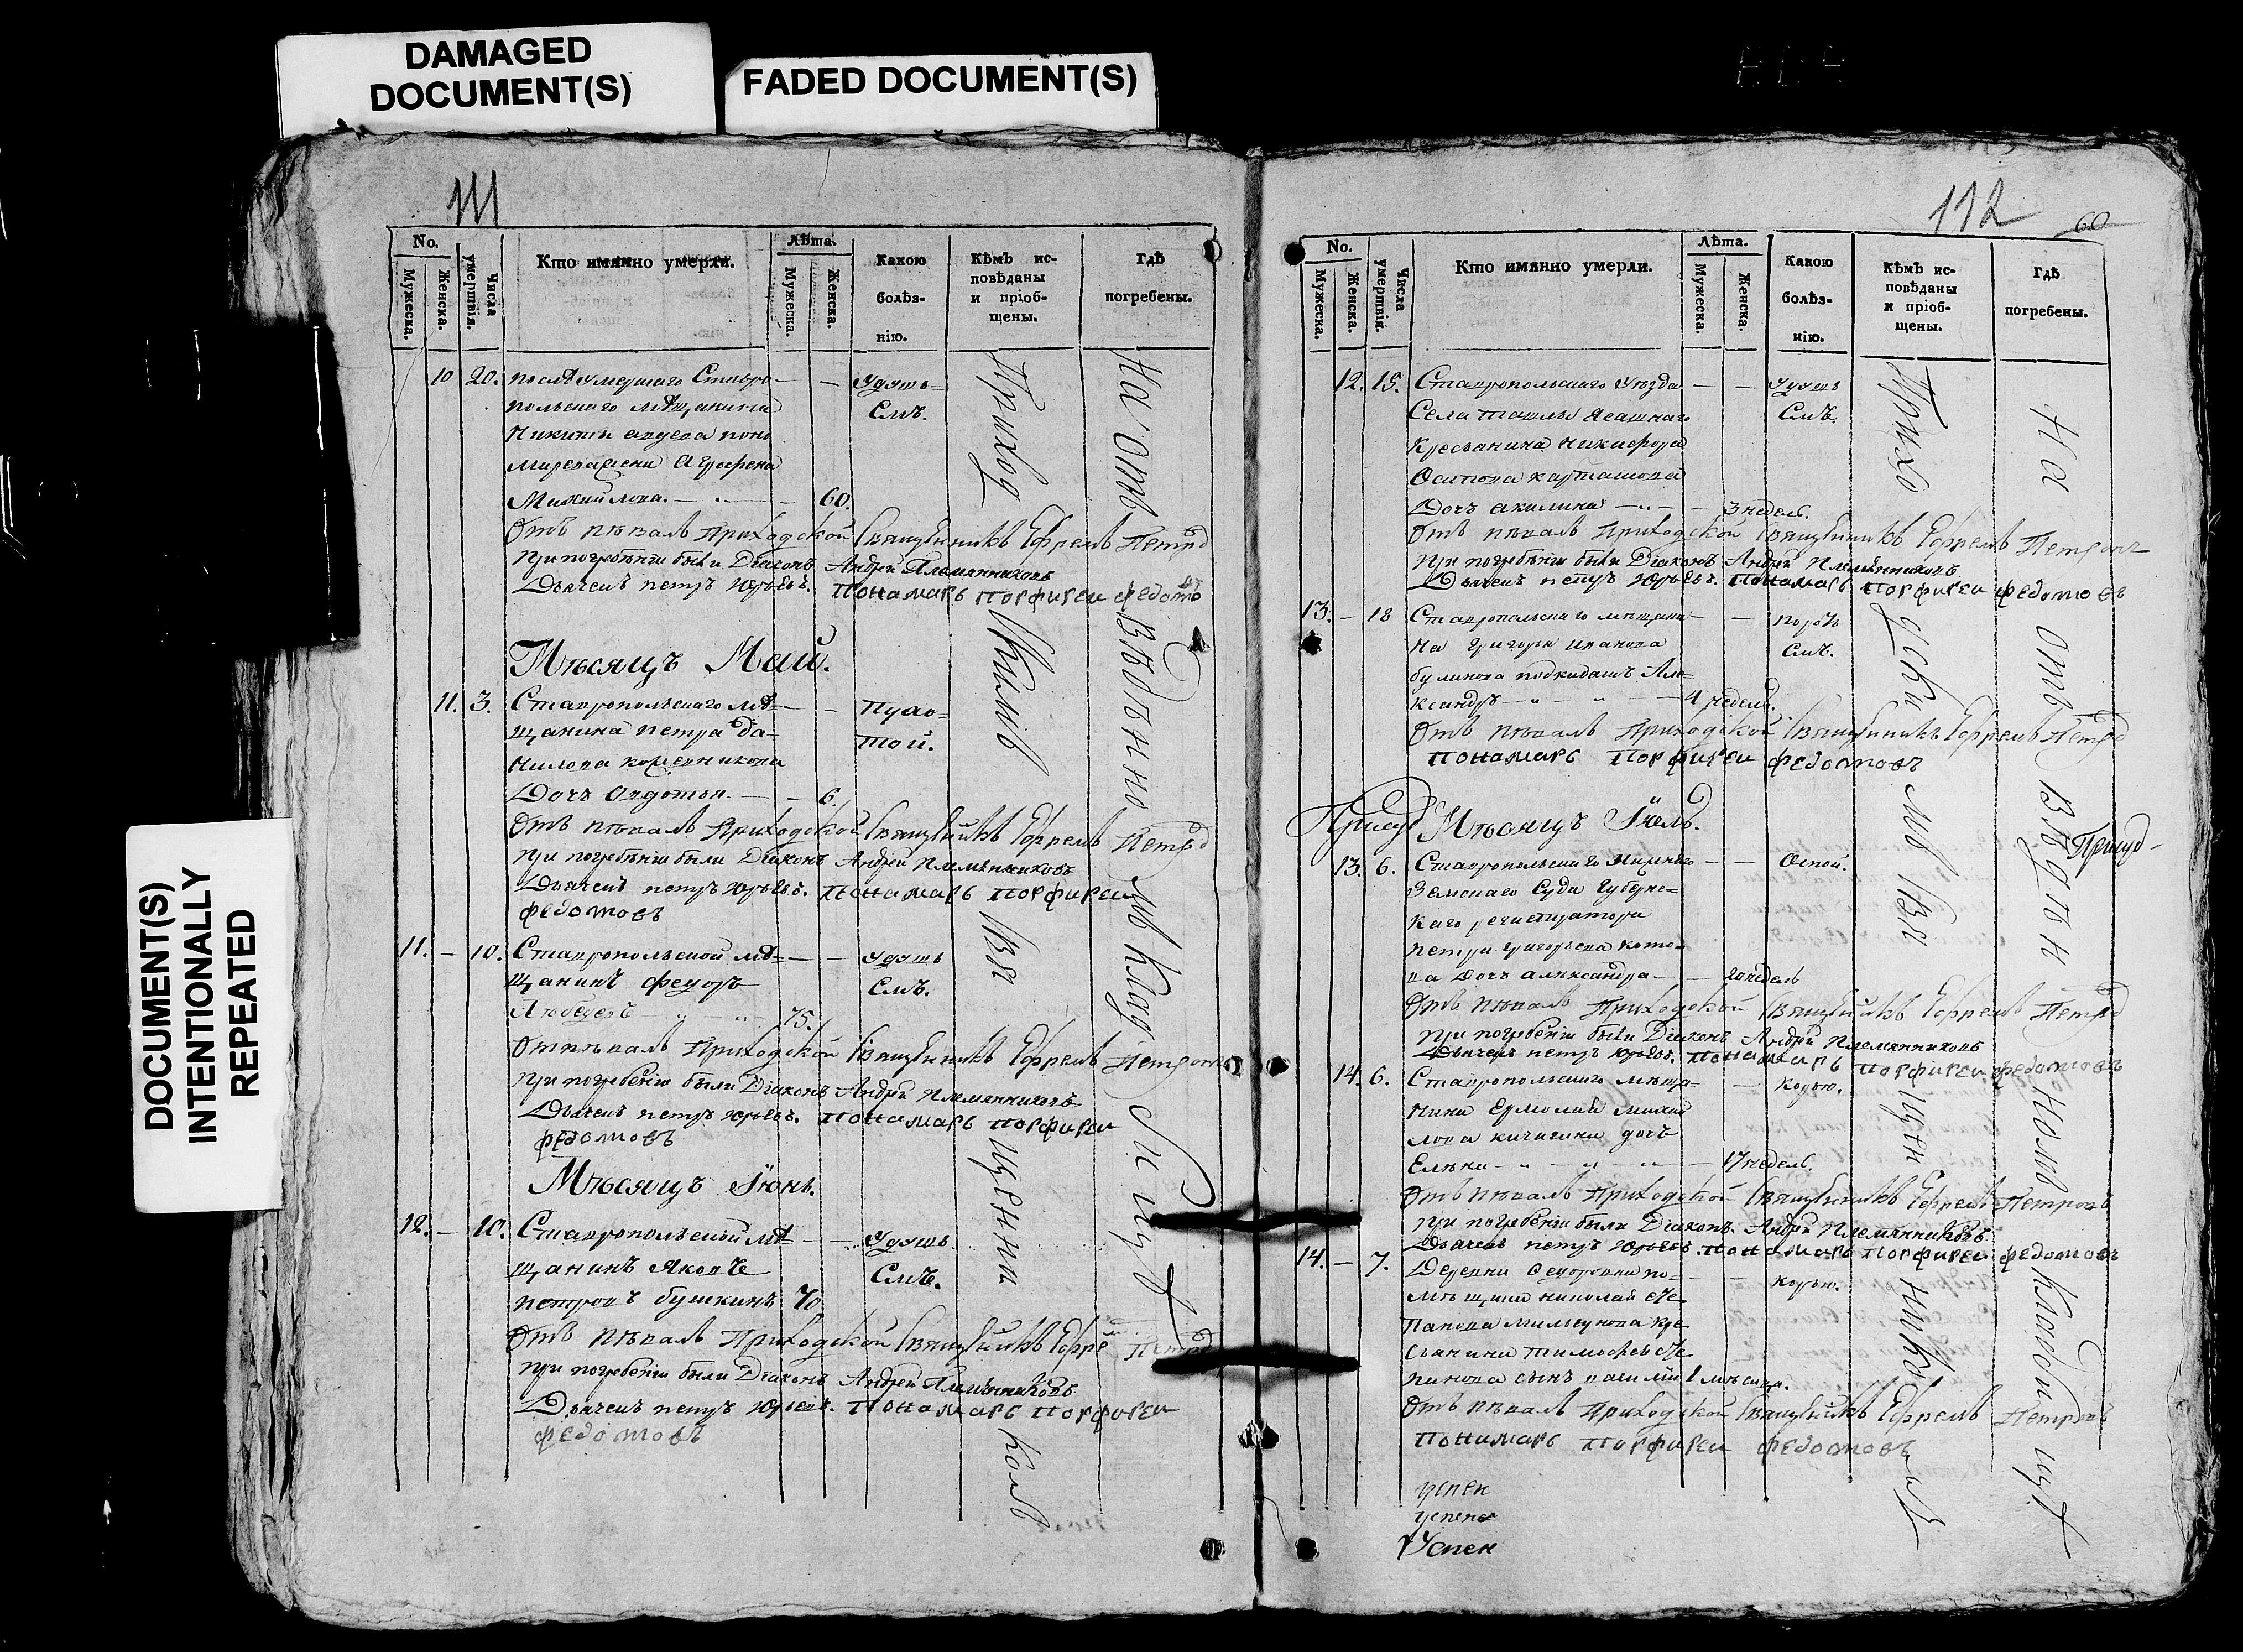 DAMAGED
DOCUMENT(S)
FADED DOCUMENT(S)
DOCUMENT(S)
INTENTIONALLY
REPEATED
111
No.
Мужеска.
Женска.
Числа умертвія.
Кто имянно умерли.
Лѣта.
Мужеска.
Женска.
Какою болѣз-нію.
Кѣмъ ис-повѣданы и пріоб-щены.
Гдѣ погребены.
10 20. послѣ умершаго Ставро— — Удушь=
польскаго мѣщанина Смъ.
Никиты
Агрофена
Михайлова. — 60.
Отъ пѣвалъ Приходской Священникъ Ефремъ Петро
При погребѣніи были Діаконъ Андрей Племянниковъ
Дьячекъ петръ Юрьевъ. Пономарь Порфирей федотовъ
Мѣсяцъ Маій.
11. 3. Ставропольскаго мѣ= —
щанина петра Да= той.
нилова
Дочь Авдотья — 6.
Отъ пѣвалъ Приходской Священникъ Ефремъ Петро
При погребѣніи были Діаконъ Андрей Племянниковъ
Дьячекъ петръ Юрьевъ. Пономарь Порфирей
федотовъ
11. — 10. Ставропольской мѣ= — Удушь
щанинъ федоръ Смъ.
Лебедевъ — 75.
Отпѣвалъ Приходской Священникъ Ефремъ Петровъ
При погребѣніи были Діаконъ Андрей Племянниковъ
Дьячекъ петръ Юрьевъ. Пономарь Порфирей
федотовъ
Мѣсяцъ Іюнь.
12. — 10. Ставропольской мѣ — Удушь
щанинъ Яковъ Смъ.
петровъ бушкинъ 70
Отъ пѣвалъ Приходской Священникъ Ефремъ Петро
При погребеніи были Діаконъ Андрей Племянниковъ
Дьячекъ петръ Юрьевъ. Пономарь Порфирей
федотовъ
Приход
скимъ
Свя
щенни
комъ
На отъ
Вѣдѣнно
мъ Клад
бищѣ
112
60
No.
Мужеска.
Женска.
Числа умертвія.
Кто имянно умерли.
Лѣта.
Мужеска.
Женска.
Какою болѣз-нію.
Кѣмъ ис-повѣданы и пріоб-щены.
Гдѣ погребены.
12. 15. Ставропольскаго Уѣзда — Удушь
Села ташлы Ясашнаго Смъ.
Крестьянина Никифора
Осипова карташова
Дочь акилина — 3 недель.
Отъ пѣвалъ Приходской Священникъ Ефремъ Петровъ
При погребѣніи были Діаконъ Андрей Племянниковъ
Дьячекъ петръ Юрьевъ. Пономарь Порфирей федотовъ
13. — 18 Ставропольскаго мѣщани —
на Григорья иванова Смъ.
булинова подкидышъ Але=
ксандръ — 4 недель.
Отъ пѣвалъ Приходской Священникъ Ефремъ Петро
Пономарь Порфирей федотовъ
Мѣсяцъ Іюль.
13. 6. Ставропольскаго Нижняго — Оспой.
Земскаго Суда Губерн=
скаго регистратора
петра григорьева
дочь александра — 20 недель
Отъ пѣвалъ Приходской Священникъ Ефремъ Петро
При погребеніи были Діаконъ Андрей Племянниковъ
Дьячекъ петръ Юрьевъ. Пономарь Порфирей федотовъ
14. 6. Ставропольскаго мѣща= — корью.
нина Ермолая михай
лова кичигина дочь
Елена — 17 недель.
Отъ пѣвалъ Приходской Священникъ Ефремъ Петровъ
При погребеніи были Діаконъ Андрей Племянниковъ
Дьячекъ петръ Юрьевъ. Пономарь Порфирей федотовъ
14. — 7. Деревни Федоровки по= — корью.
мѣщика николая Сте
панова кре
стьянина тимофея Сте
панова сынъ василій 1 мѣсяца.
Отъ пѣвалъ Приходской Священникъ Ефремъ Петровъ
Пономарь Порфирей федотовъ
успен
успен
Успен
Прихо
дски
мъ Свя
щен
никомъ
На
отъ
Вѣдѣн
номъ
кладби
щѣ